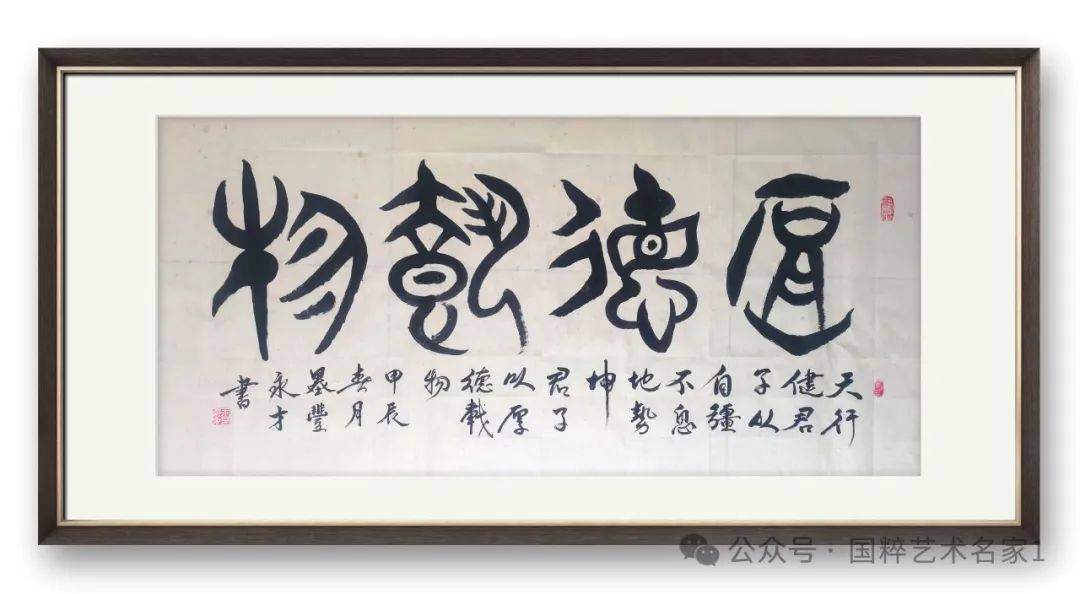 厚德載物
天行
健君
子以
自彊
不息
地勢
坤
君子
以厚
德載
物
甲辰
春月
豐
永才
書
公众号 · 国粹艺术名家1